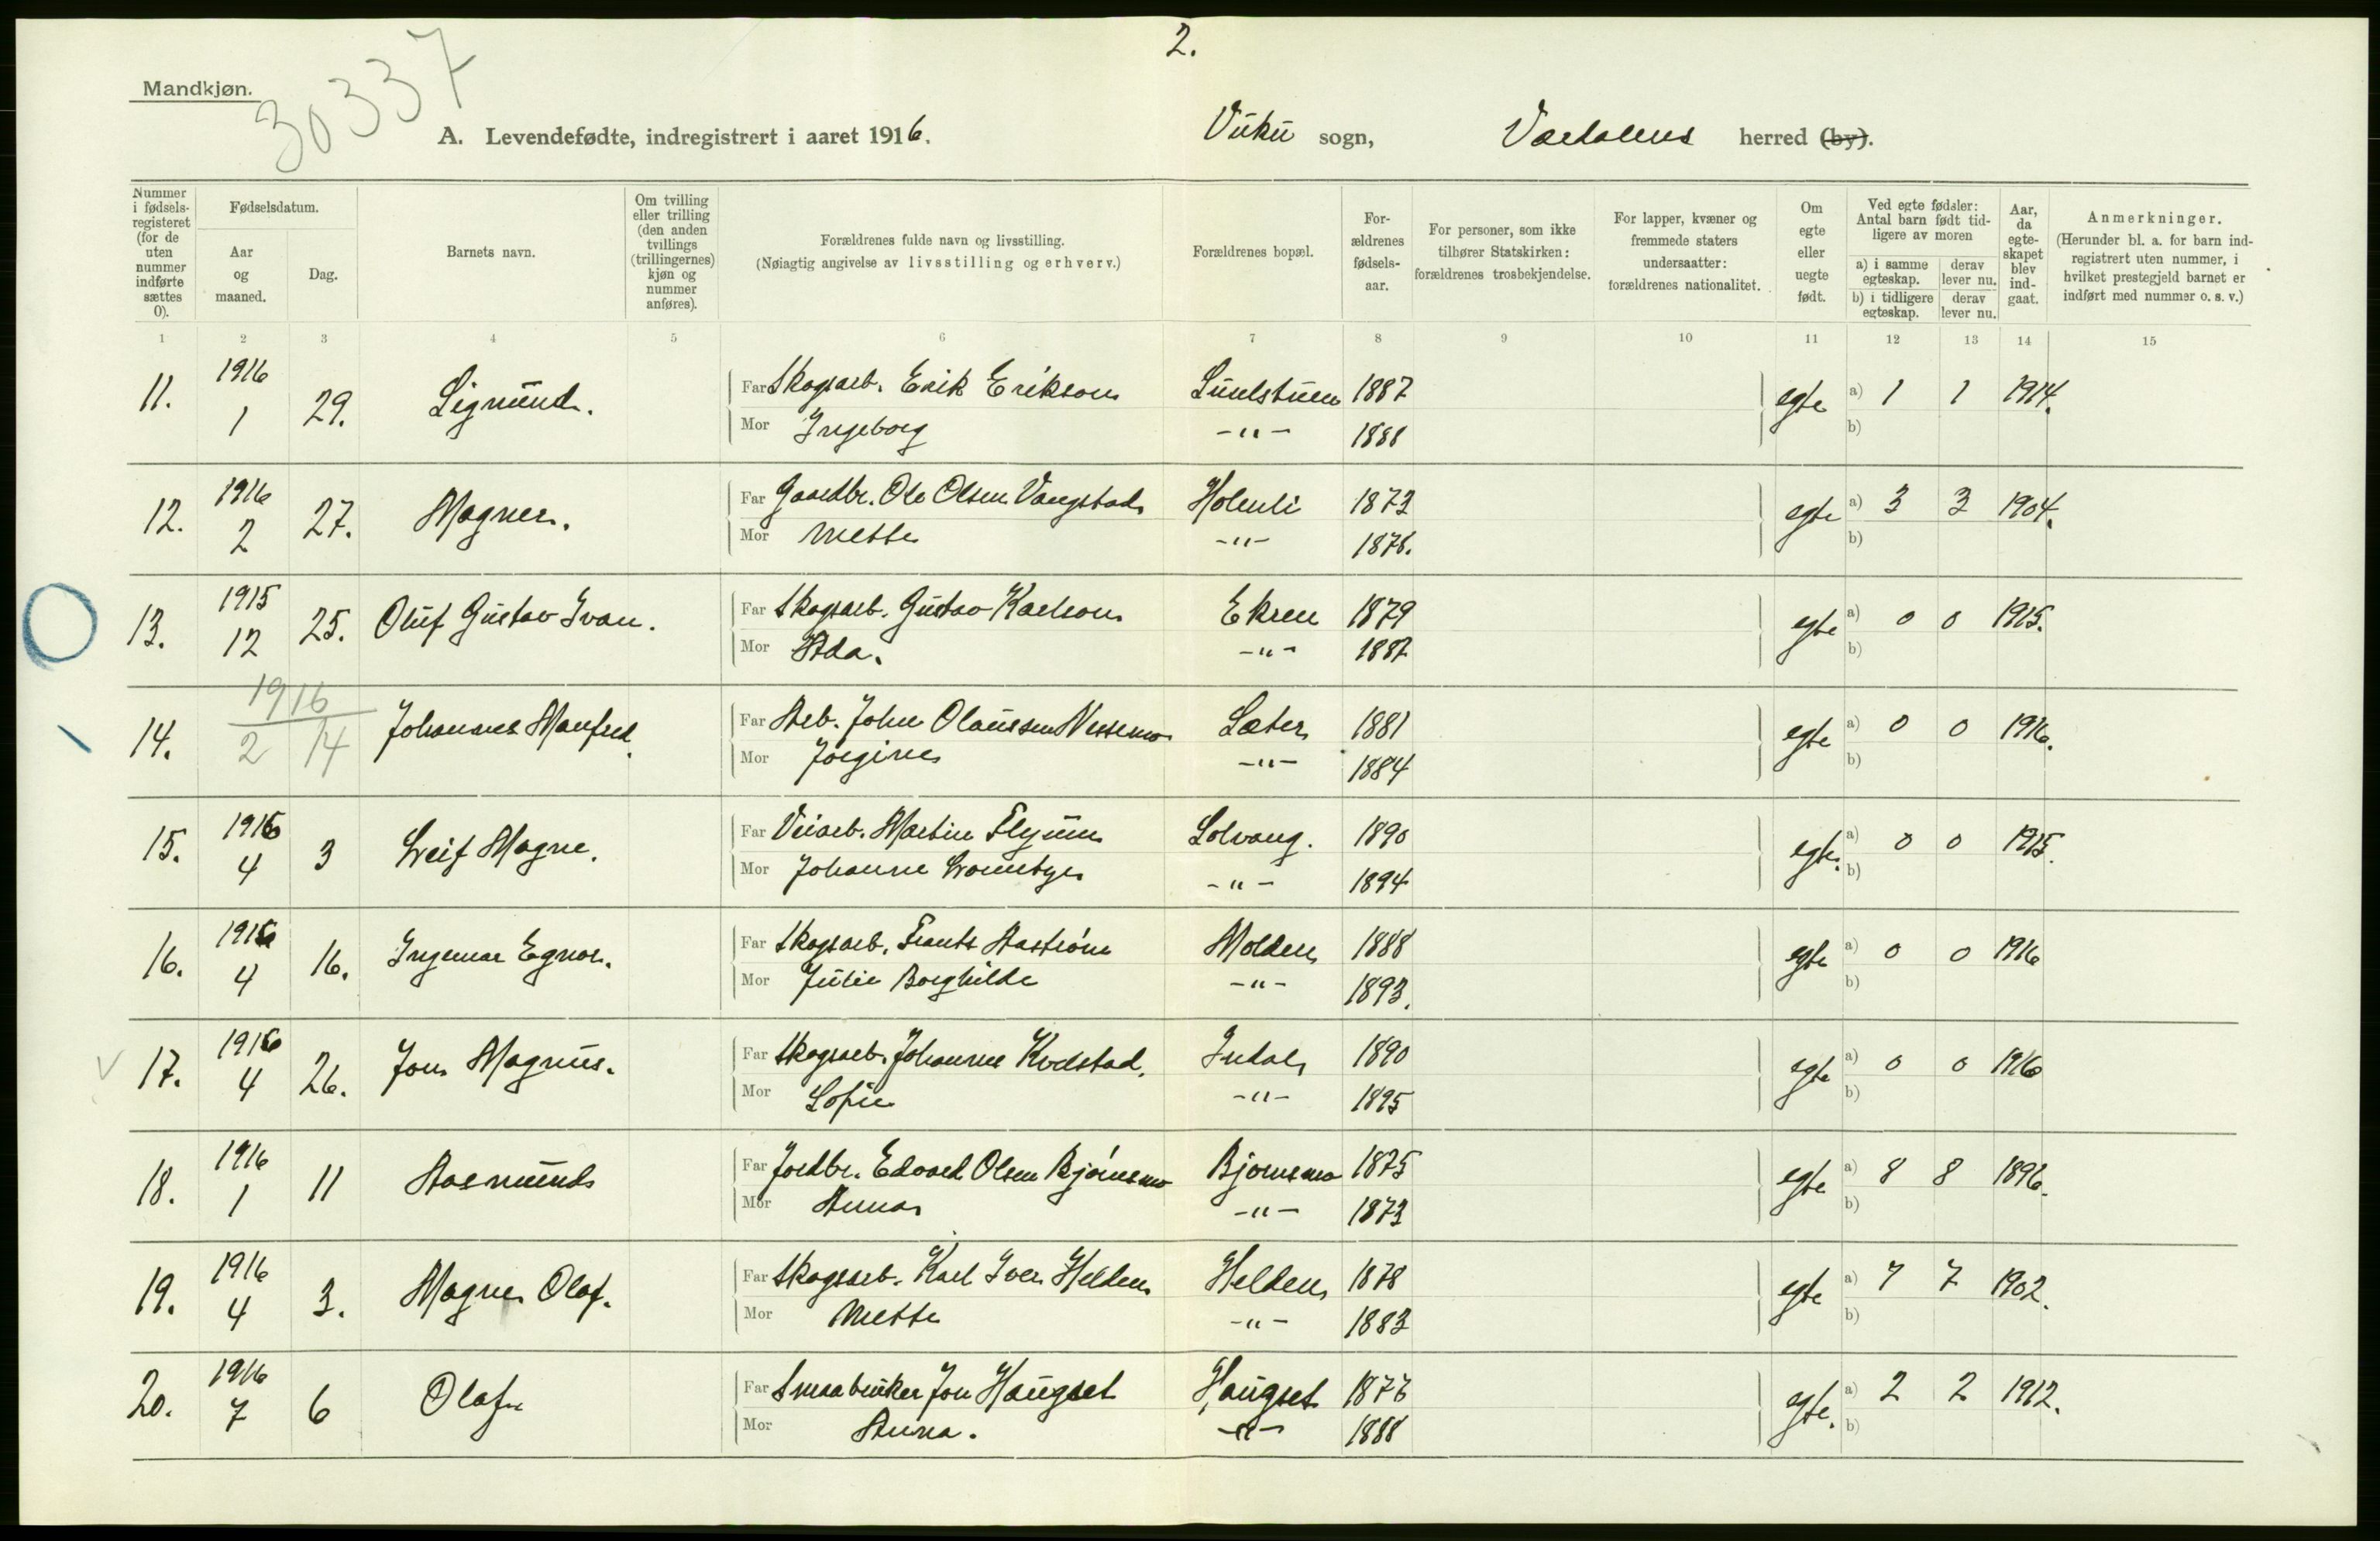 2.
Mandkjøn.
30337
A. Levendefødte, indregistrert i aaret 1916. Vuku sogn, Værdalens herred (by).
Nummer i fødsels-registeret (for de uten nummer indførte sættes 0). Fødselsdatum. Aar og maaned. Dag. Barnets navn. Om tvilling eller trilling (den anden tvillings (trillingernes) kjøn og nummer anføres). Forældrenes fulde navn og livsstilling. (Nøiagtig angivelse av livsstilling og erhverv.) Forældrenes bopæl. For-ældrenes fødsels-aar. For personer, som ikke tilhører Statskirken: forældrenes trosbekjendelse. For lapper, kvæner og fremmede staters undersaatter: forældrenes nationalitet. Om egte eller uegte født. Ved egte fødsler: Antal barn født tid-ligere av moren a) i samme egteskap. derav lever nu. b) i tidligere egteskap. derav lever nu. Aar, da egte-skapet blev ind-gaat. Anmerkninger. (Herunder bl. a. for barn ind-registrert uten nummer, i hvilket prestegjeld barnet er indført med nummer o. s. v.)
1 2 3 4 5 6 7 8 9 10 11 12 13 14 15
11. 1916 1 29. Sigmund. Far Skogsarb. Erik Erikson 1887 egte a) 1 1 1914.
Mor Ingeborg -"- 1888 b)
12. 1916 2 27. Magne. Far Gaardbr. Ole Olsen Vangstad Holmli 1873 egte a) 3 3 1904.
Mor Mette -"- 1876. b)
13. 1915 12 25. Oluf Gustav Ivan. Far Skogsarb. Gustav Karlson Ekren 1879 egte a) 0 0 1915.
Mor Ada. -"- 1887 b)
14. 1916 2 14 Johannes Manfred. Far Arb. John Olaussen Nessemo Sæter 1881 egte a) 0 0 1916.
Mor Jørgine -"- 1884 b)
15. 1916 4 3 Leif Magne. Far Veiarb. Martin Flyum Solvang. 1890 egte. a) 0 0 1915.
Mor Johanne -"- 1894 b)
16. 1916 4 16. Ingemar Egnor. Far Skogsarb. Frants Aastrøm Molden 1888 egte a) 0 0 1916
Mor Julie Borghilde -"- 1893. b)
17. 1916 4 26. Jon Magnus. Far Skogsarb. Johannes Kvelstad. Indal 1890 egte a) 0 0 1916
Mor Sofie -"- 1895 b)
18. 1916 1 11 Aasmund Far Jordbr. Edvard Olsen Bjørnsmo Bjørnsmo 1875 egte a) 8 8 1896.
Mor Anna -"- 1873 b)
19. 1916 4 3. Magne Olaf. Far Skogsarb. Karl Iver Helden Helden 1878 egte a) 7 7 1902.
Mor Mette -"- 1883 b)
20. 1916 7 6 Olaf Far Smaabruker Jon Haugset Haugset 1876 egte. a) 2 2 1912.
Mor Anna. -"- 1888 b)